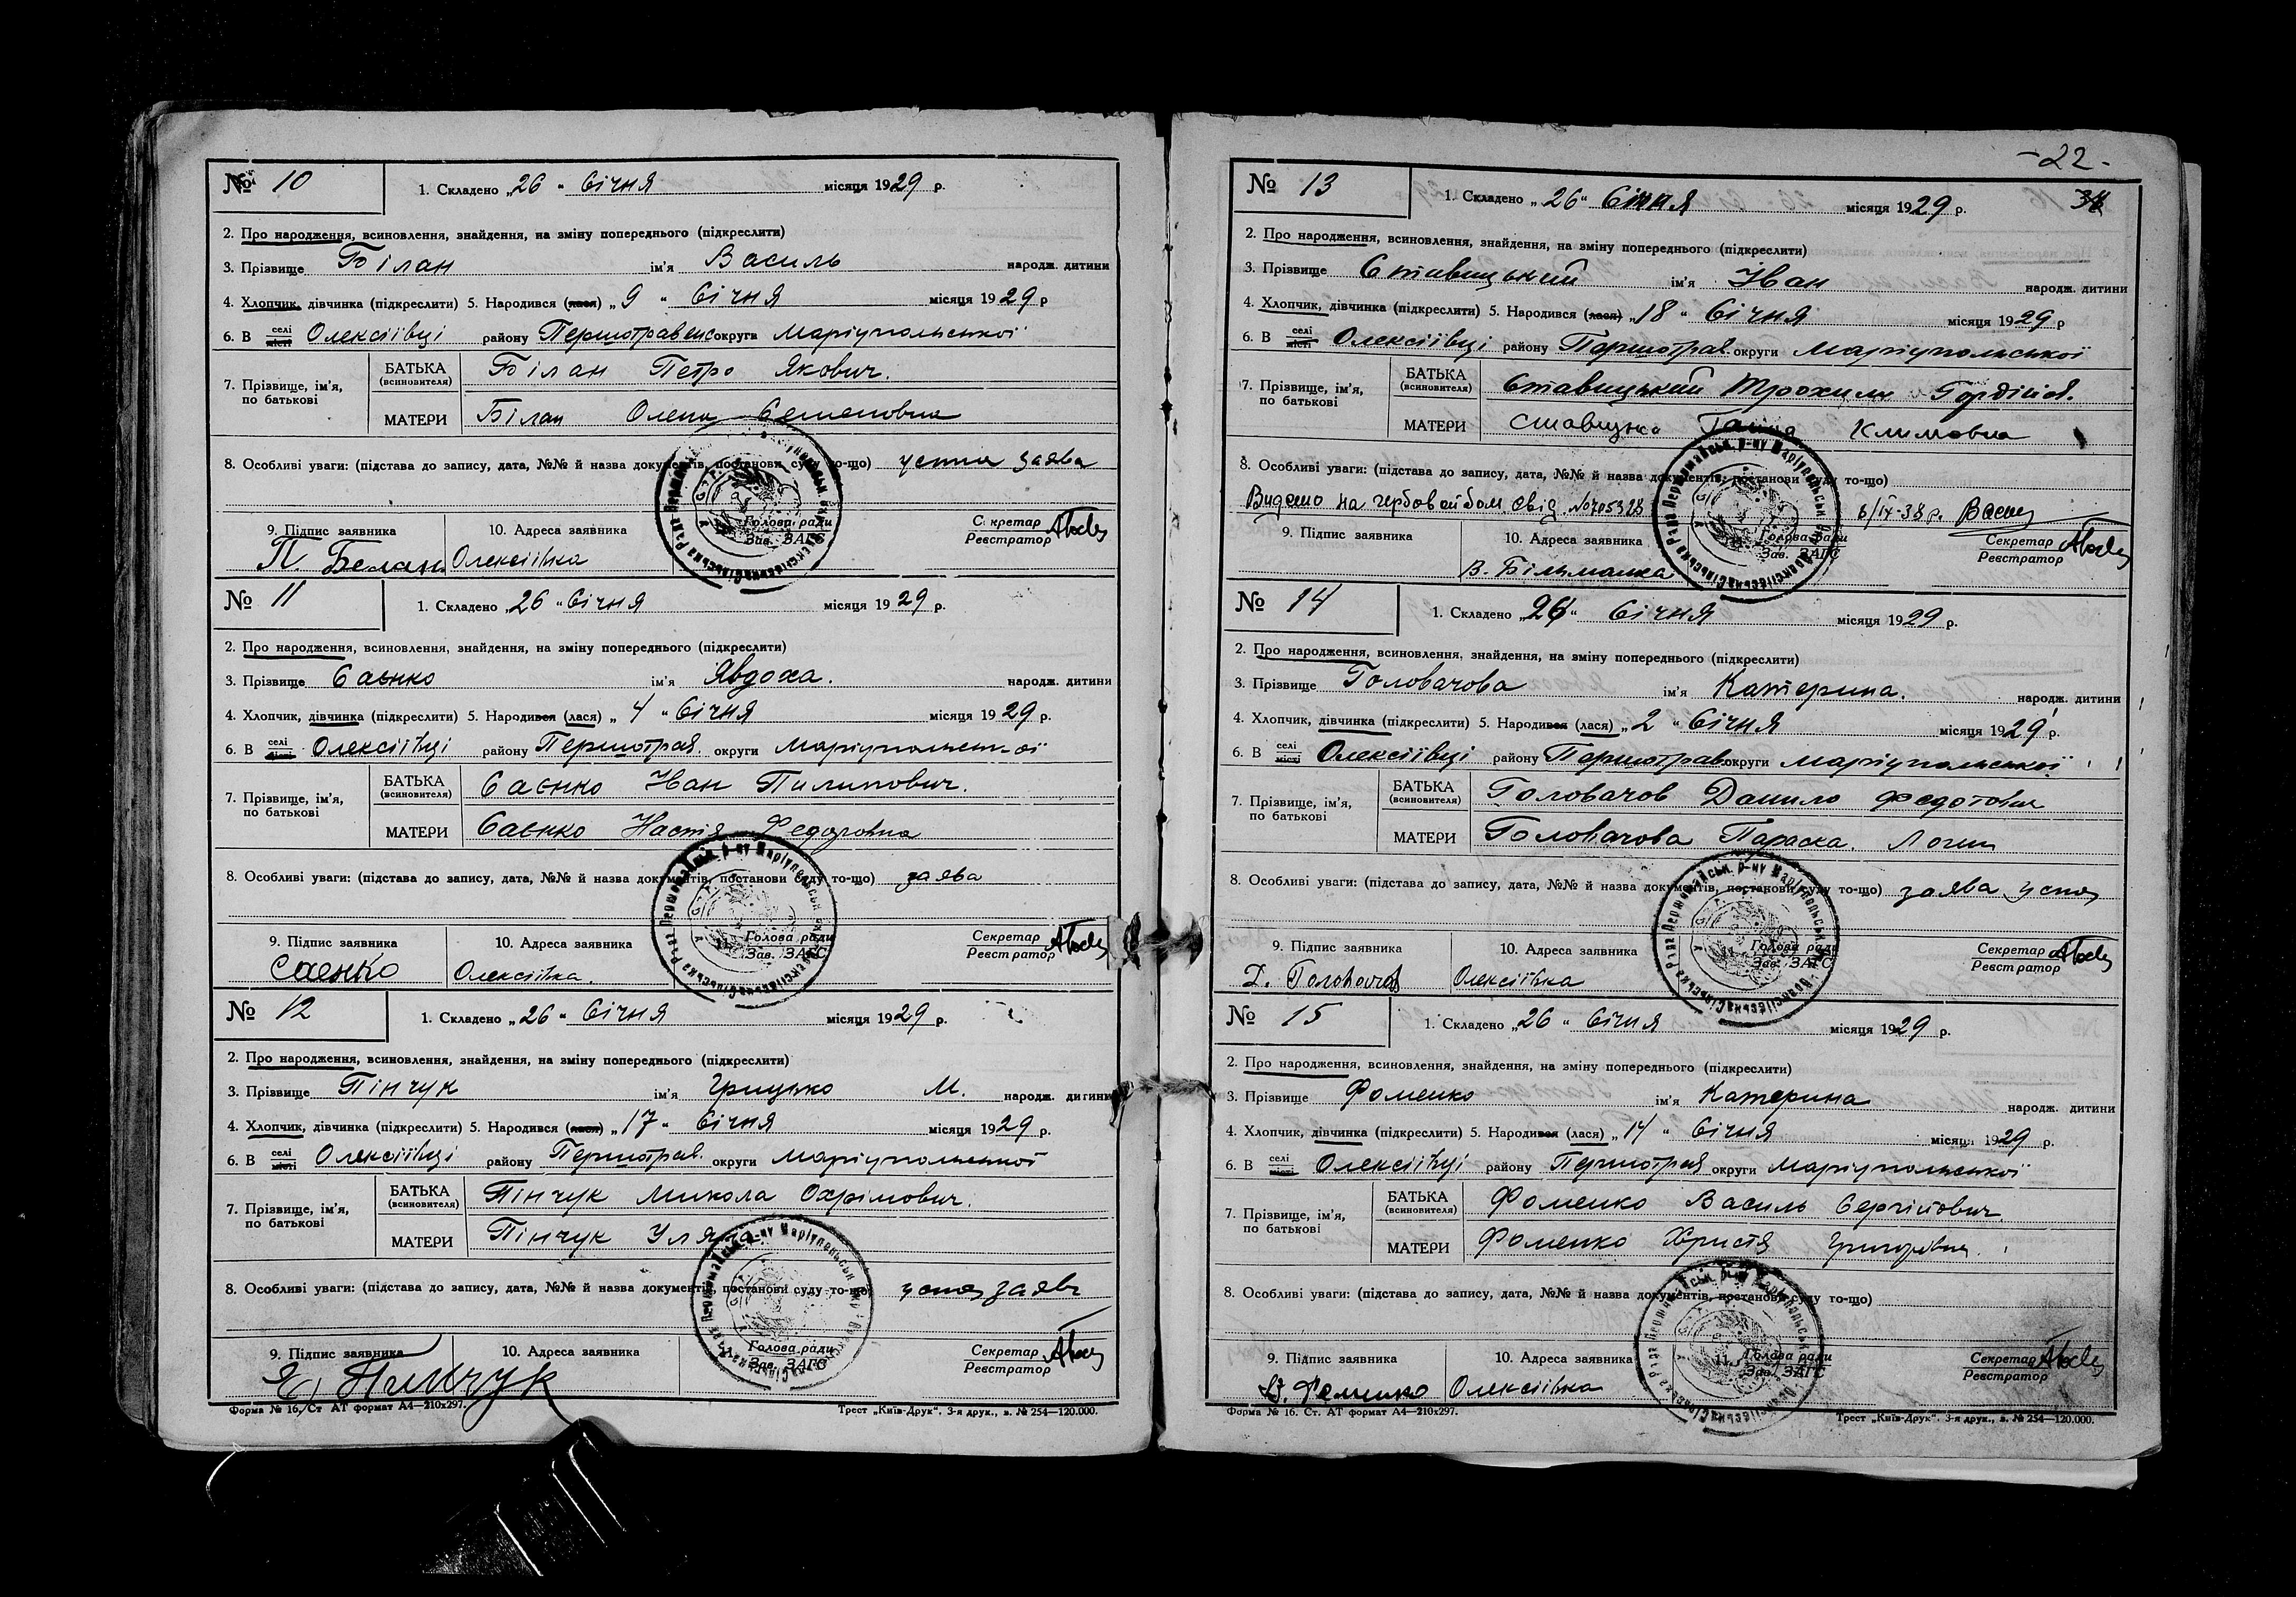 № 10
1. Складено „26" Січня місяця 1929 р.
2. Про народження, всиновлення, знайдення, на зміну попереднього (підкреслити)
3. Прізвище Білан ім'я Василь народж. дитини
4. Хлопчик, дівчинка (підкреслити) 5. Народився (лася) „9" Січня місяця 1929 р
6. В селі місті Олексіївці району Першотравенс округи Маріупольської
7. Прізвище, ім'я, по батькові
БАТЬКА (всиновителя) Білан Петро Якович.
МАТЕРИ Білан Олена Семеновна
8. Особливі уваги: (підстава до запису, дата, №№ й назва документів, постанови суду то-що) устна заява
9. Підпис заявника 10. Адреса заявника Голова ради Зав. ЗАГС Секретар Реєстратор
П. Белан Олексіївка
№ 11
1. Складено „26" Січня місяця 1929 р.
2. Про народження, всиновлення, знайдення, на зміну попереднього (підкреслити)
3. Прізвище Саєнко ім'я Явдоха. народж. дитини
4. Хлопчик, дівчинка (підкреслити) 5. Народився (лася) „4" Січня місяця 1929 р.
6. В селі місті Олексіївці району Першотрав. округи Маріупольської
7. Прізвище, ім'я, по батькові
БАТЬКА (всиновителя) Саєнко Іван Пилипович.
МАТЕРИ Саєнко Настя Федоровна
8. Особливі уваги: (підстава до запису, дата, №№ й назва документів, постанови суду то-що) заява
9. Підпис заявника 10. Адреса заявника Голова ради Зав. ЗАГС Секретар Реєстратор
Саенко Олексіївка.
№ 12
1. Складено „26" Січня місяця 1929 р.
2. Про народження, всиновлення, знайдення, на зміну попереднього (підкреслити)
3. Прізвище Пінчук ім'я Грицько М. народж. дитини
4. Хлопчик, дівчинка (підкреслити) 5. Народився (лася) „17" Січня місяця 1929 р.
6. В селі місті Олексіївці району Першотрав. округи Маріупольської
7. Прізвище, ім'я, по батькові
БАТЬКА (всиновителя) Пінчук Микола Охрімович.
МАТЕРИ Пінчук Уляна
8. Особливі уваги: (підстава до запису, дата, №№ й назва документів, постанови суду то-що)
9. Підпис заявника 10. Адреса заявника Голова ради Зав. ЗАГС Секретар Реєстратор
Форма № 16. Ст. АТ формат А4—210х297. Трест „Київ-Друк". 3-я друк., в. № 254—120.000.
- 22 -
№ 13
1. Складено „26" Січня місяця 1929 р.
2. Про народження, всиновлення, знайдення, на зміну попереднього (підкреслити)
3. Прізвище Ставицький ім'я Іван народж. дитини
4. Хлопчик, дівчинка (підкреслити) 5. Народився (лася) „18" Січня місяця 1929 р
6. В селі місті Олексіївці району Першотрав. округи Маріупольської
7. Прізвище, ім'я, по батькові
БАТЬКА (всиновителя) Ставицький Трохим Гордійов.
МАТЕРИ Ставицька Ганна Климовна
8. Особливі уваги: (підстава до запису, дата, №№ й назва документів, постанови суду то-що)
Видано на гербовой бом. свід. № 705328 6/IV-38 р.
9. Підпис заявника 10. Адреса заявника Голова ради Зав. ЗАГС Секретар Реєстратор
В. Більманка
№ 14
1. Складено „26" Січня місяця 1929 р.
2. Про народження, всиновлення, знайдення, на зміну попереднього (підкреслити)
3. Прізвище Головачова ім'я Катерина. народж. дитини
4. Хлопчик, дівчинка (підкреслити) 5. Народився (лася) „2" Січня місяця 1929 р.
6. В селі місті Олексіївці району Першотрав. округи Маріупольської
7. Прізвище, ім'я, по батькові
БАТЬКА (всиновителя) Головачов Данило Федотович
МАТЕРИ Головачова Параска.
8. Особливі уваги: (підстава до запису, дата, №№ й назва документів, постанови суду то-що) заява устна
9. Підпис заявника 10. Адреса заявника Голова ради Зав. ЗАГС Секретар Реєстратор
Д. Головачов Олексіївка
№ 15
1. Складено „26" Січня місяця 1929 р.
2. Про народження, всиновлення, знайдення, на зміну попереднього (підкреслити)
3. Прізвище Фоменко ім'я Катерина народж. дитини
4. Хлопчик, дівчинка (підкреслити) 5. Народився (лася) „14" Січня місяця 1929 р.
6. В селі місті Олексіївці району Першотрав округи Маріупольської
7. Прізвище, ім'я, по батькові
БАТЬКА (всиновителя) Фоменко Василь Сергійович.
МАТЕРИ Фоменко Христя Григорівна.
8. Особливі уваги: (підстава до запису, дата, №№ й назва документів, постанови суду то-що)
9. Підпис заявника 10. Адреса заявника 11. Голова ради Зав. ЗАГС Секретар Реєстратор
Фоменко Олексіївка
Форма № 16. Ст. АТ формат А4—210х297. Трест „Київ-Друк". 3-я друк., в. № 254—120.000.